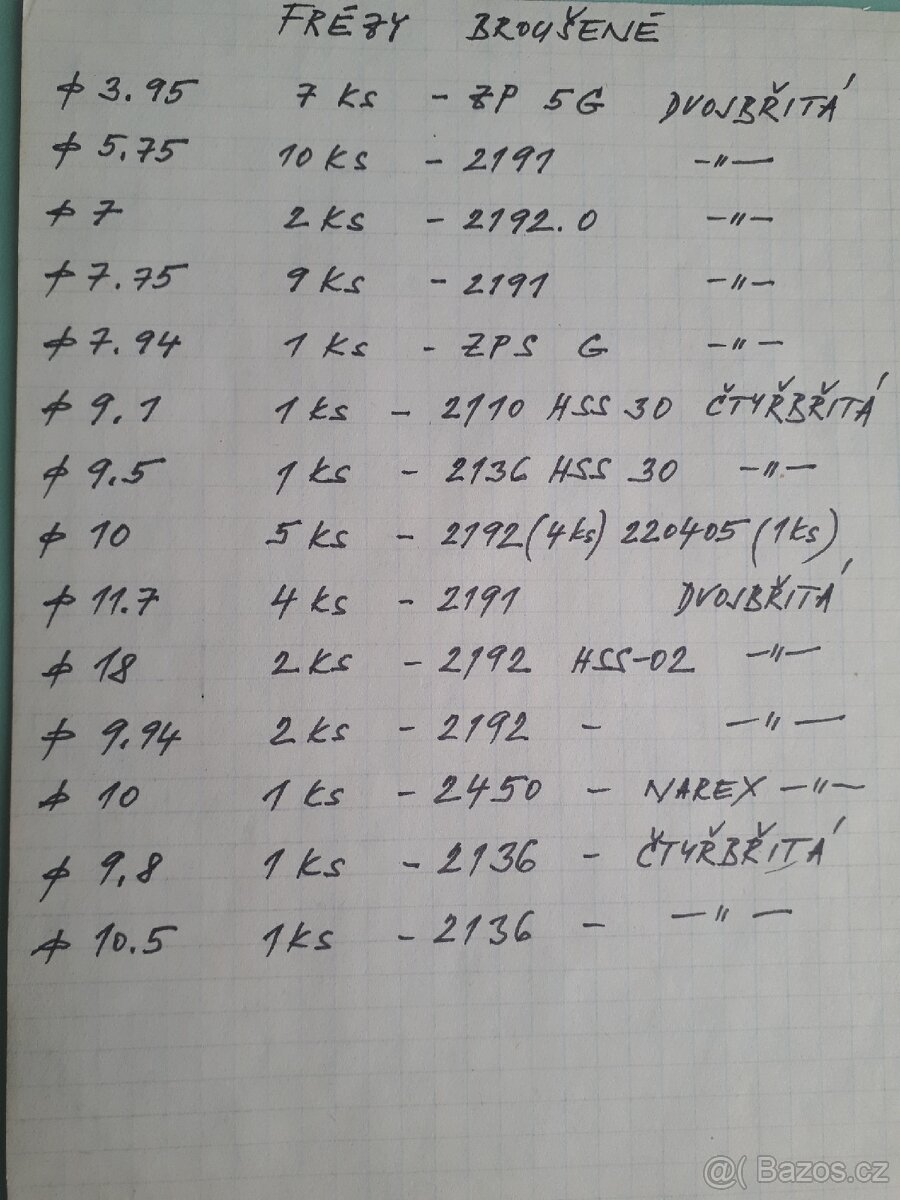 FRÉZY BROUŠENÉ
ϕ 3.95 7 KS - ZP 5G DVOJBŘITÁ
ϕ 5.75 10 KS - 2191 -"-
ϕ 7 2 KS - 2192.0 -"-
ϕ 7.75 9 KS - 2191 -"-
ϕ 7.94 1 KS - ZPS G -"-
ϕ 9.1 1 KS - 2110 HSS 30 ČTYŘBŘITÁ
ϕ 9.5 1 KS - 2136 HSS 30 -"-
ϕ 10 5 KS - 2192 (4 KS) 220405 (1 KS)
ϕ 11.7 4 KS - 2191 DVOJBŘITÁ
ϕ 18 2 KS - 2192 HSS-02 -"-
ϕ 9.94 2 KS - 2192 - -"-
ϕ 10 1 KS - 2450 - NAREX -"-
ϕ 9,8 1 KS - 2136 - ČTYŘBŘITÁ
ϕ 10.5 1 KS - 2136 - -"-
@( Bazos.cz